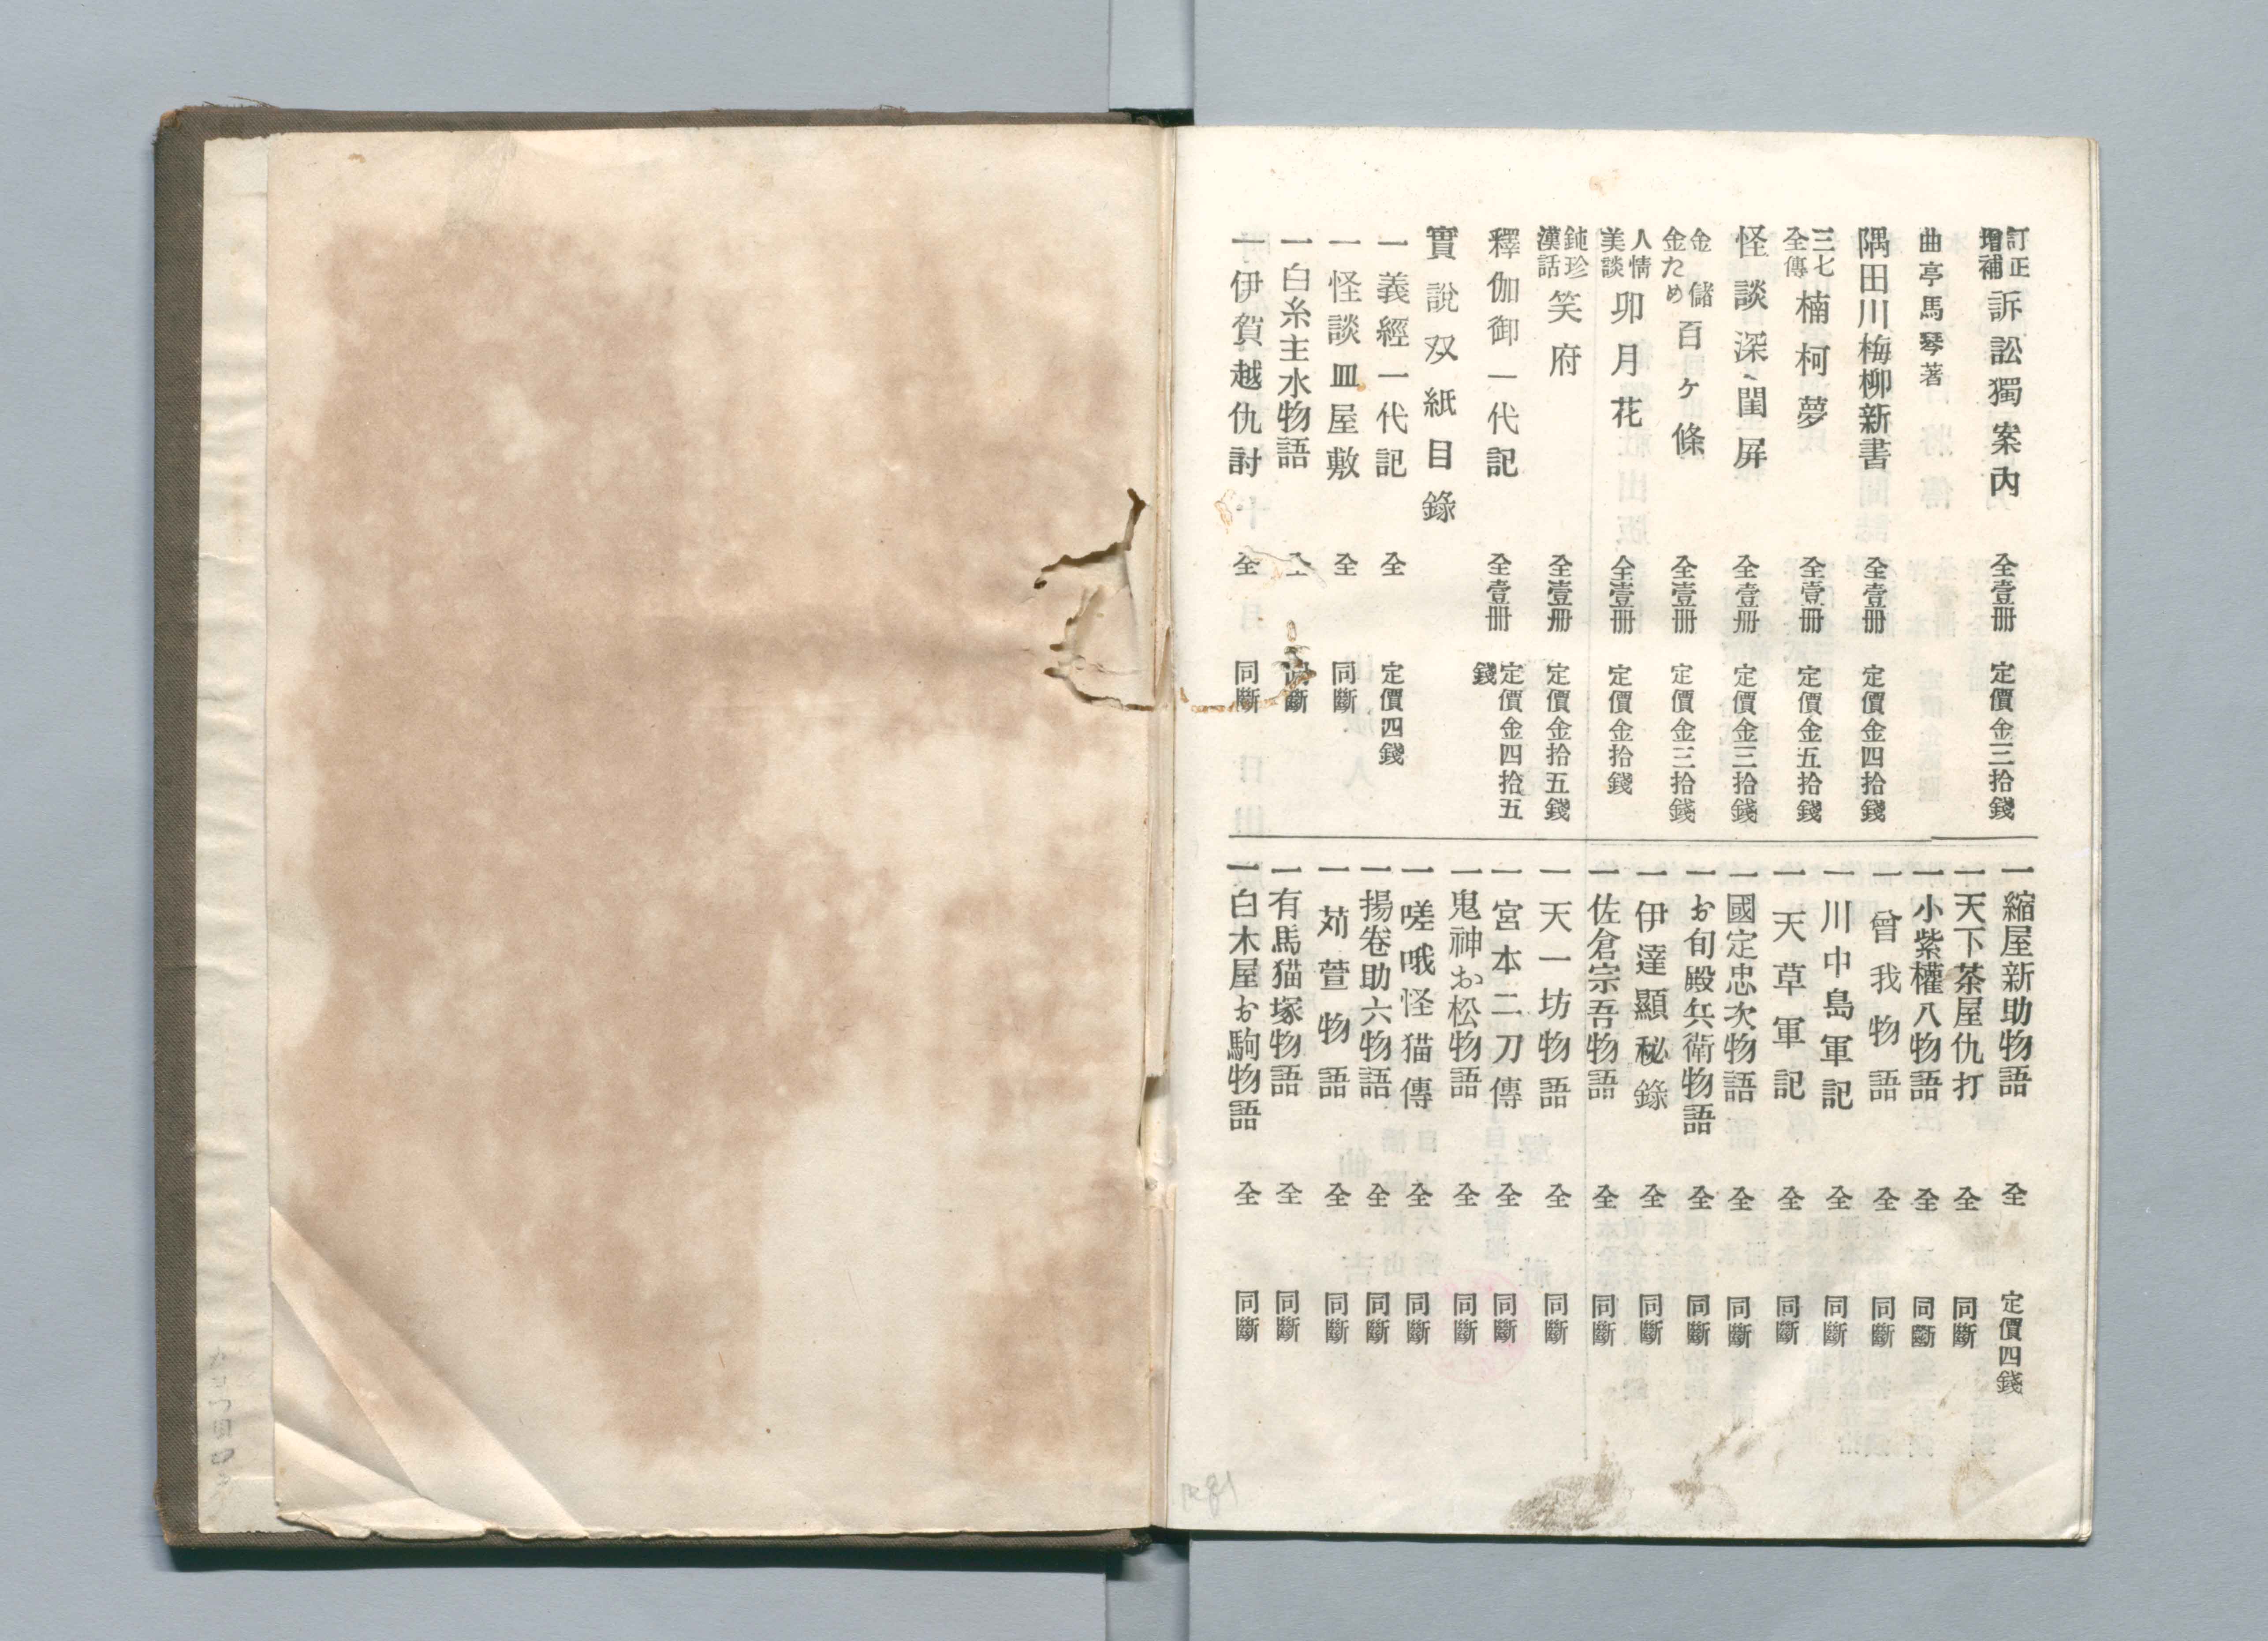 訂正増補 訴訟獨案内 全壹冊 定價金三拾錢
曲亭馬琴著
隅田川梅柳新書 全壹冊 定價金四拾錢
三七全傳 楠柯夢 全壹冊 定價金五拾錢
怪談深閨屏 全壹冊 定價金三拾錢
金儲金ため 百ヶ條 全壹冊 定價金三拾錢
人情美談 卯月花 全壹冊 定價金拾錢
鈍珍漢話 笑府 全壹冊 定價金拾五錢
釋伽御一代記 全壹冊 定價金四拾五錢
實説双紙目錄
一義經一代記 全 定價四錢
一怪談皿屋敷 全 同斷
一白糸主水物語 全 同斷
一伊賀越仇討 全 同斷
一縮屋新助物語 全 定價四錢
一天下茶屋仇打 全 同斷
一小紫權八物語 全 同斷
一曾我物語 全 同斷
一川中島軍記 全 同斷
一天草軍記 全 同斷
一國定忠次物語 全 同斷
一お旬殿兵衛物語 全 同斷
一伊達顯秘錄 全 同斷
一佐倉宗吾物語 全 同斷
一天一坊物語 全 同斷
一宮本二刀傳 全 同斷
一鬼神お松物語 全 同斷
一嗟哦怪猫傳 全 同斷
一揚卷助六物語 全 同斷
一苅萱物語 全 同斷
一有馬猫塚物語 全 同斷
一白木屋お駒物語 全 同斷